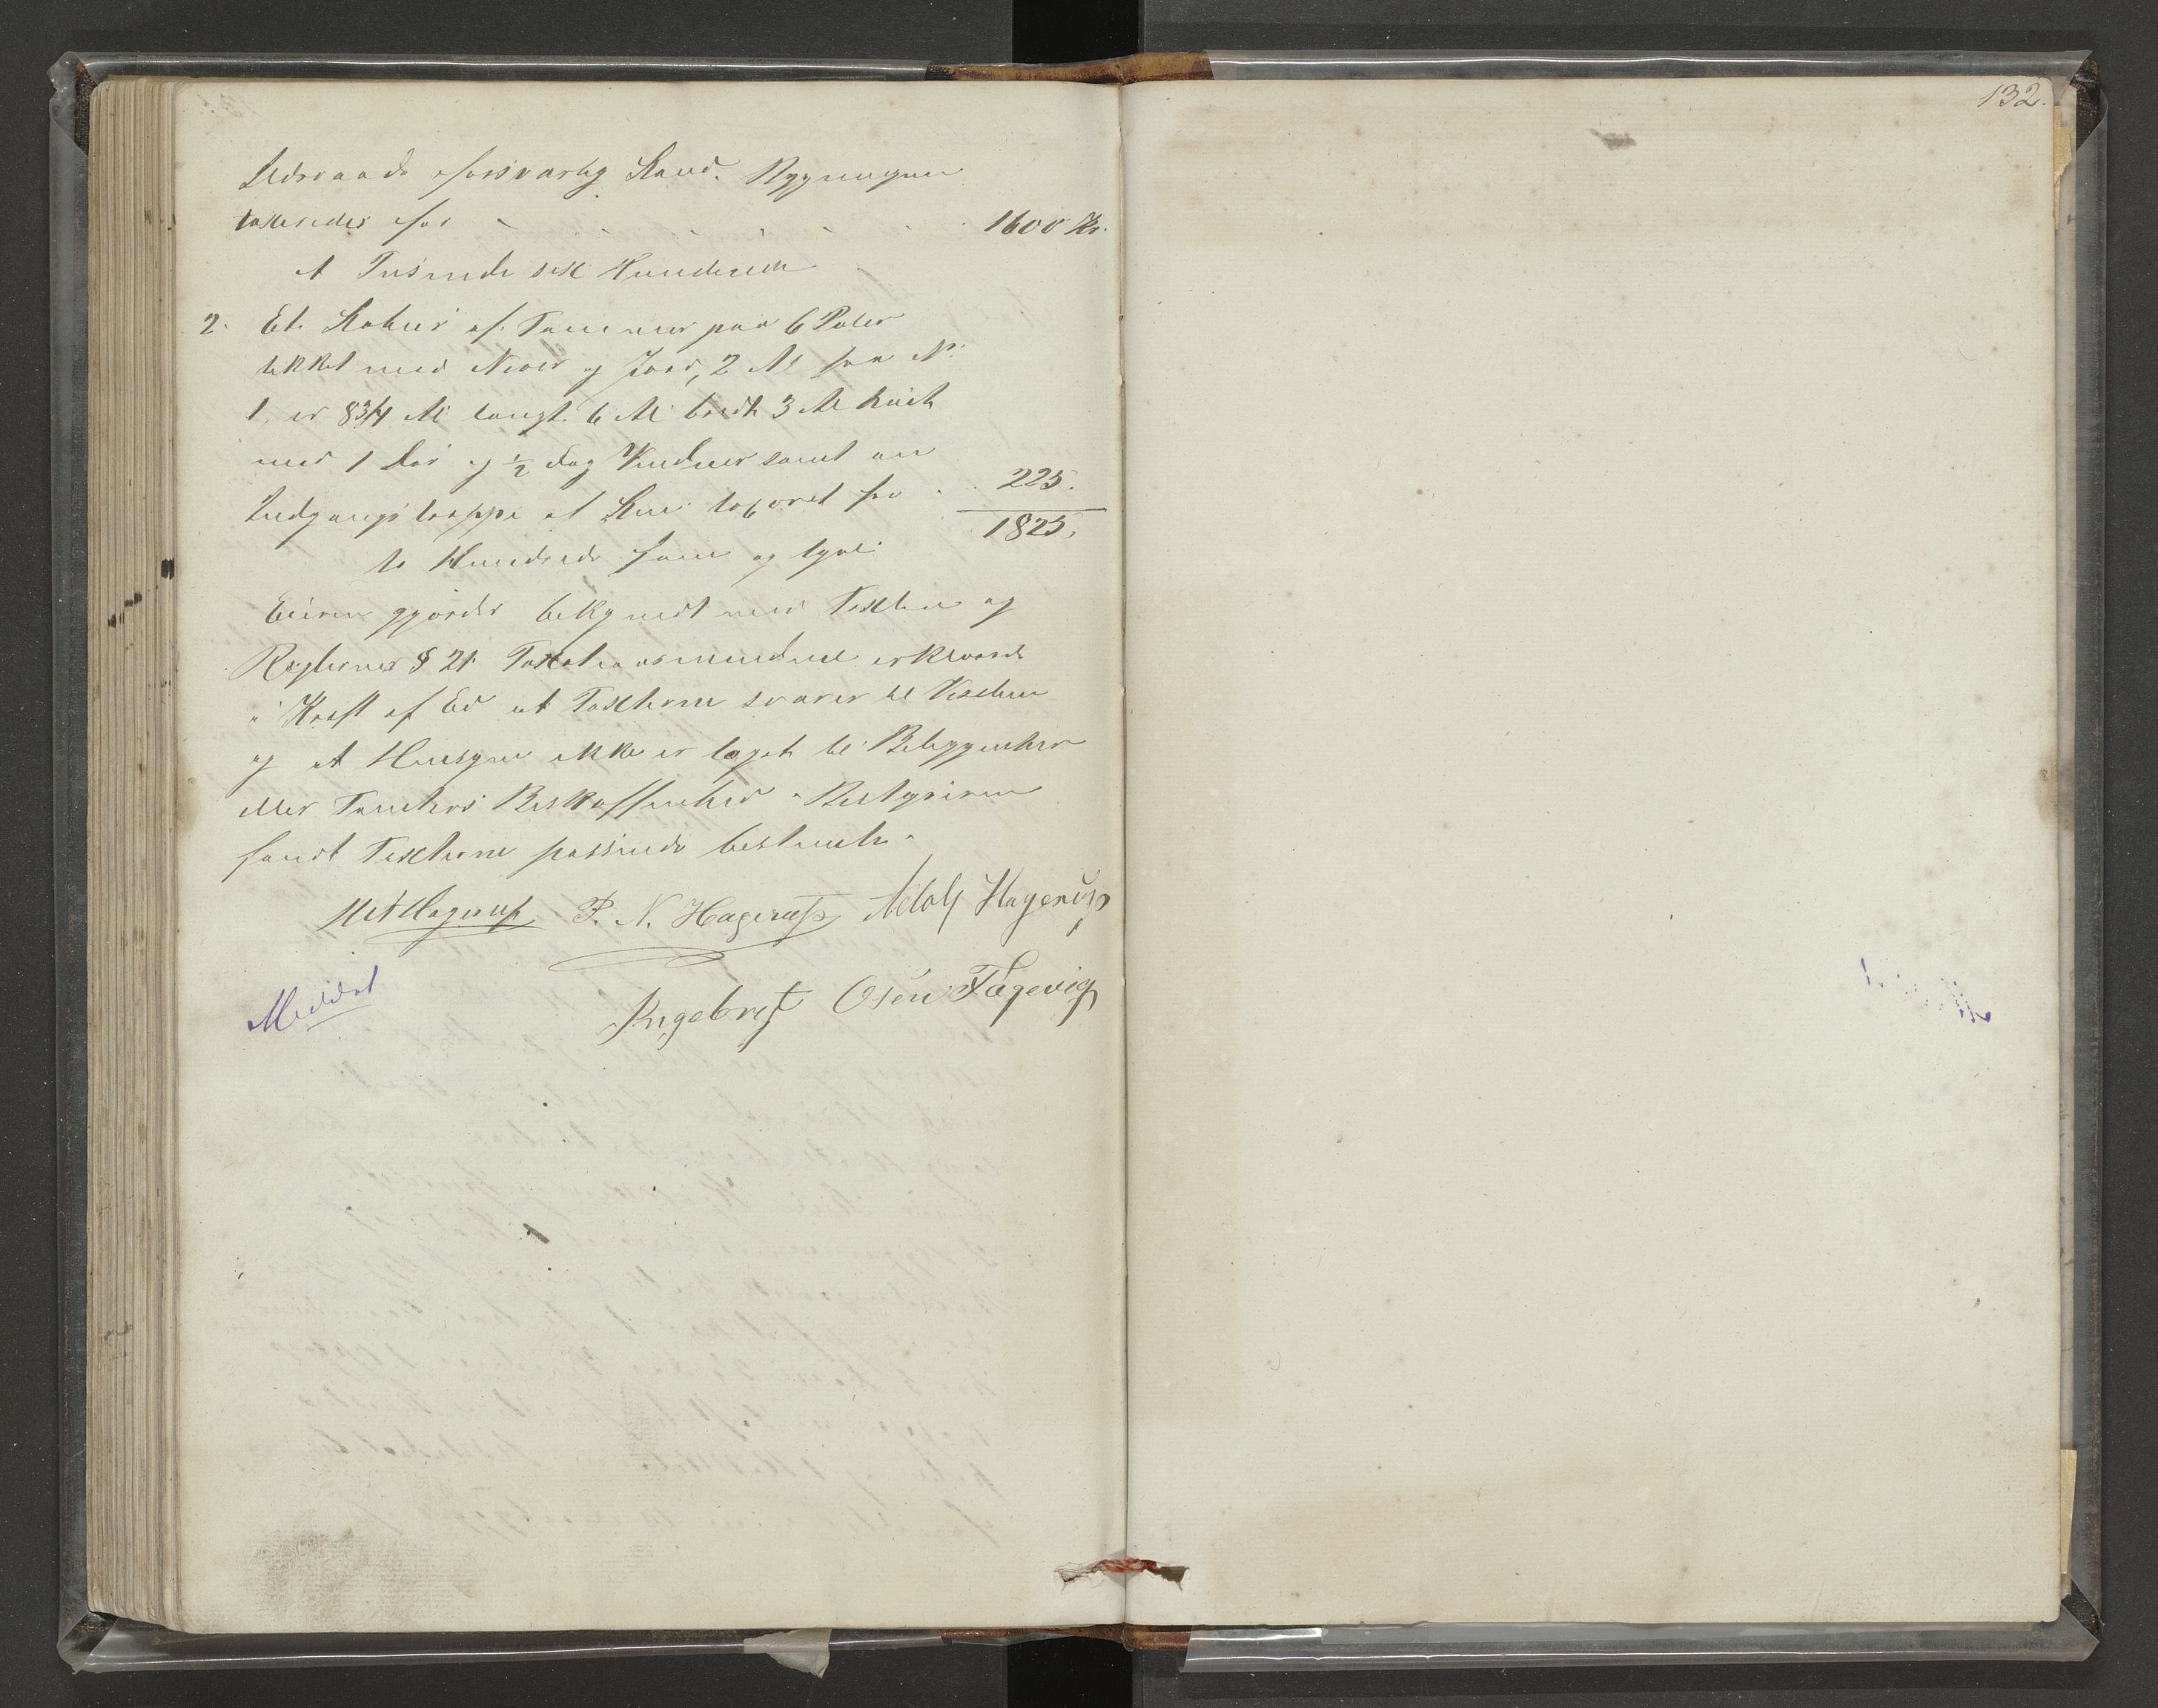 132.
Ildsraade forsvarlig Stand. Bygningen
taxeredes for - - - - - - 1600 Kr.
et Tusinde sex Hundrede
2. Et Stabur af Tømmer paa 6 Peler
tækket med Næver og Jord, 2 Al fra No
1, er 8 3/4 Al langt 6 Al bredt 3 Al høit
med 1 Dør og 1/2 Fag Vinduer samt en
Indgangstrappe af Sten taxeret for 225.
1825.
to Hundrede fem og tyve
Eieren gjordes bekjendt med Taxten og
Reglernes § 21. Taxationsmændene erklærede
i Kraft af Ed at Taxterne svarer til Værdien
og at Hensyn ikke er taget til Beliggenhed
eller Tomtens Beskaffenhed. Bestyreren
fandt Taxterne passende bestemte.
Hagerup P. N. Hagerup Adolf Hagerup
Ingebregt Osen Fagervig
Meddelt